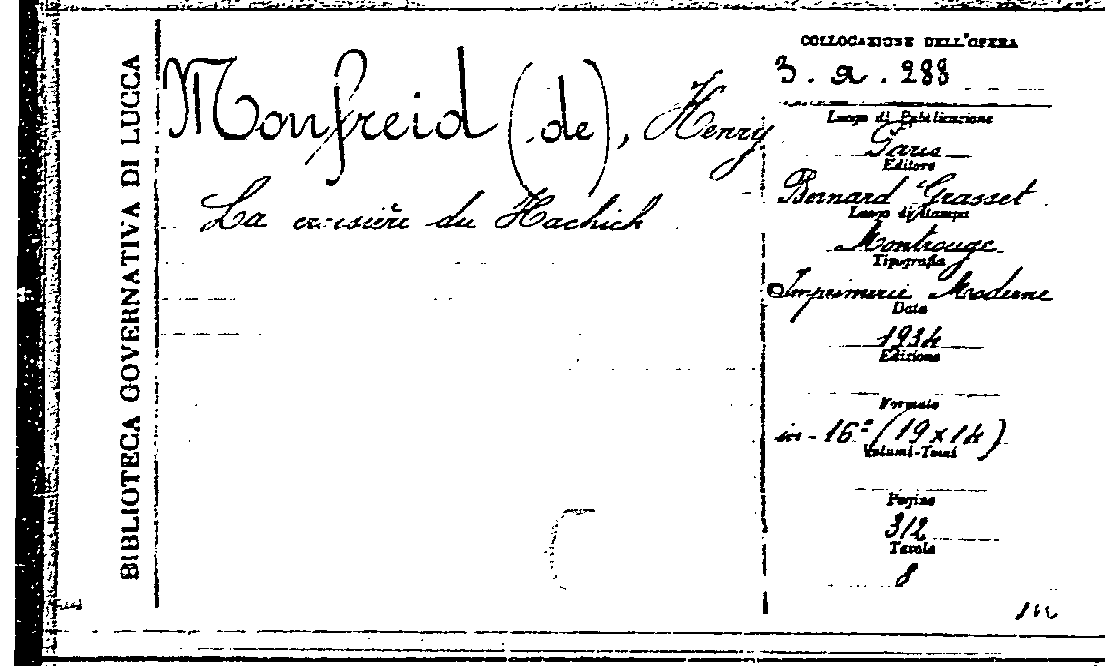 BIBLIOTECA GOVERNATIVA DI LUCCA
Monfreid (de), Henry
La croisière du Hachich
COLLOCAZIONE DELL'OPERA
3. a. 288
Luogo di Pubblicazione
Paris
Editore
Bernard Grasset
Luogo di Stampa
Montrouge
Tipografia
Imprimerie Moderne
Data
1934
Edizione
Formato
in-16º (19x14)
Volumi-Tomi
Pagine
312
Tavole
8